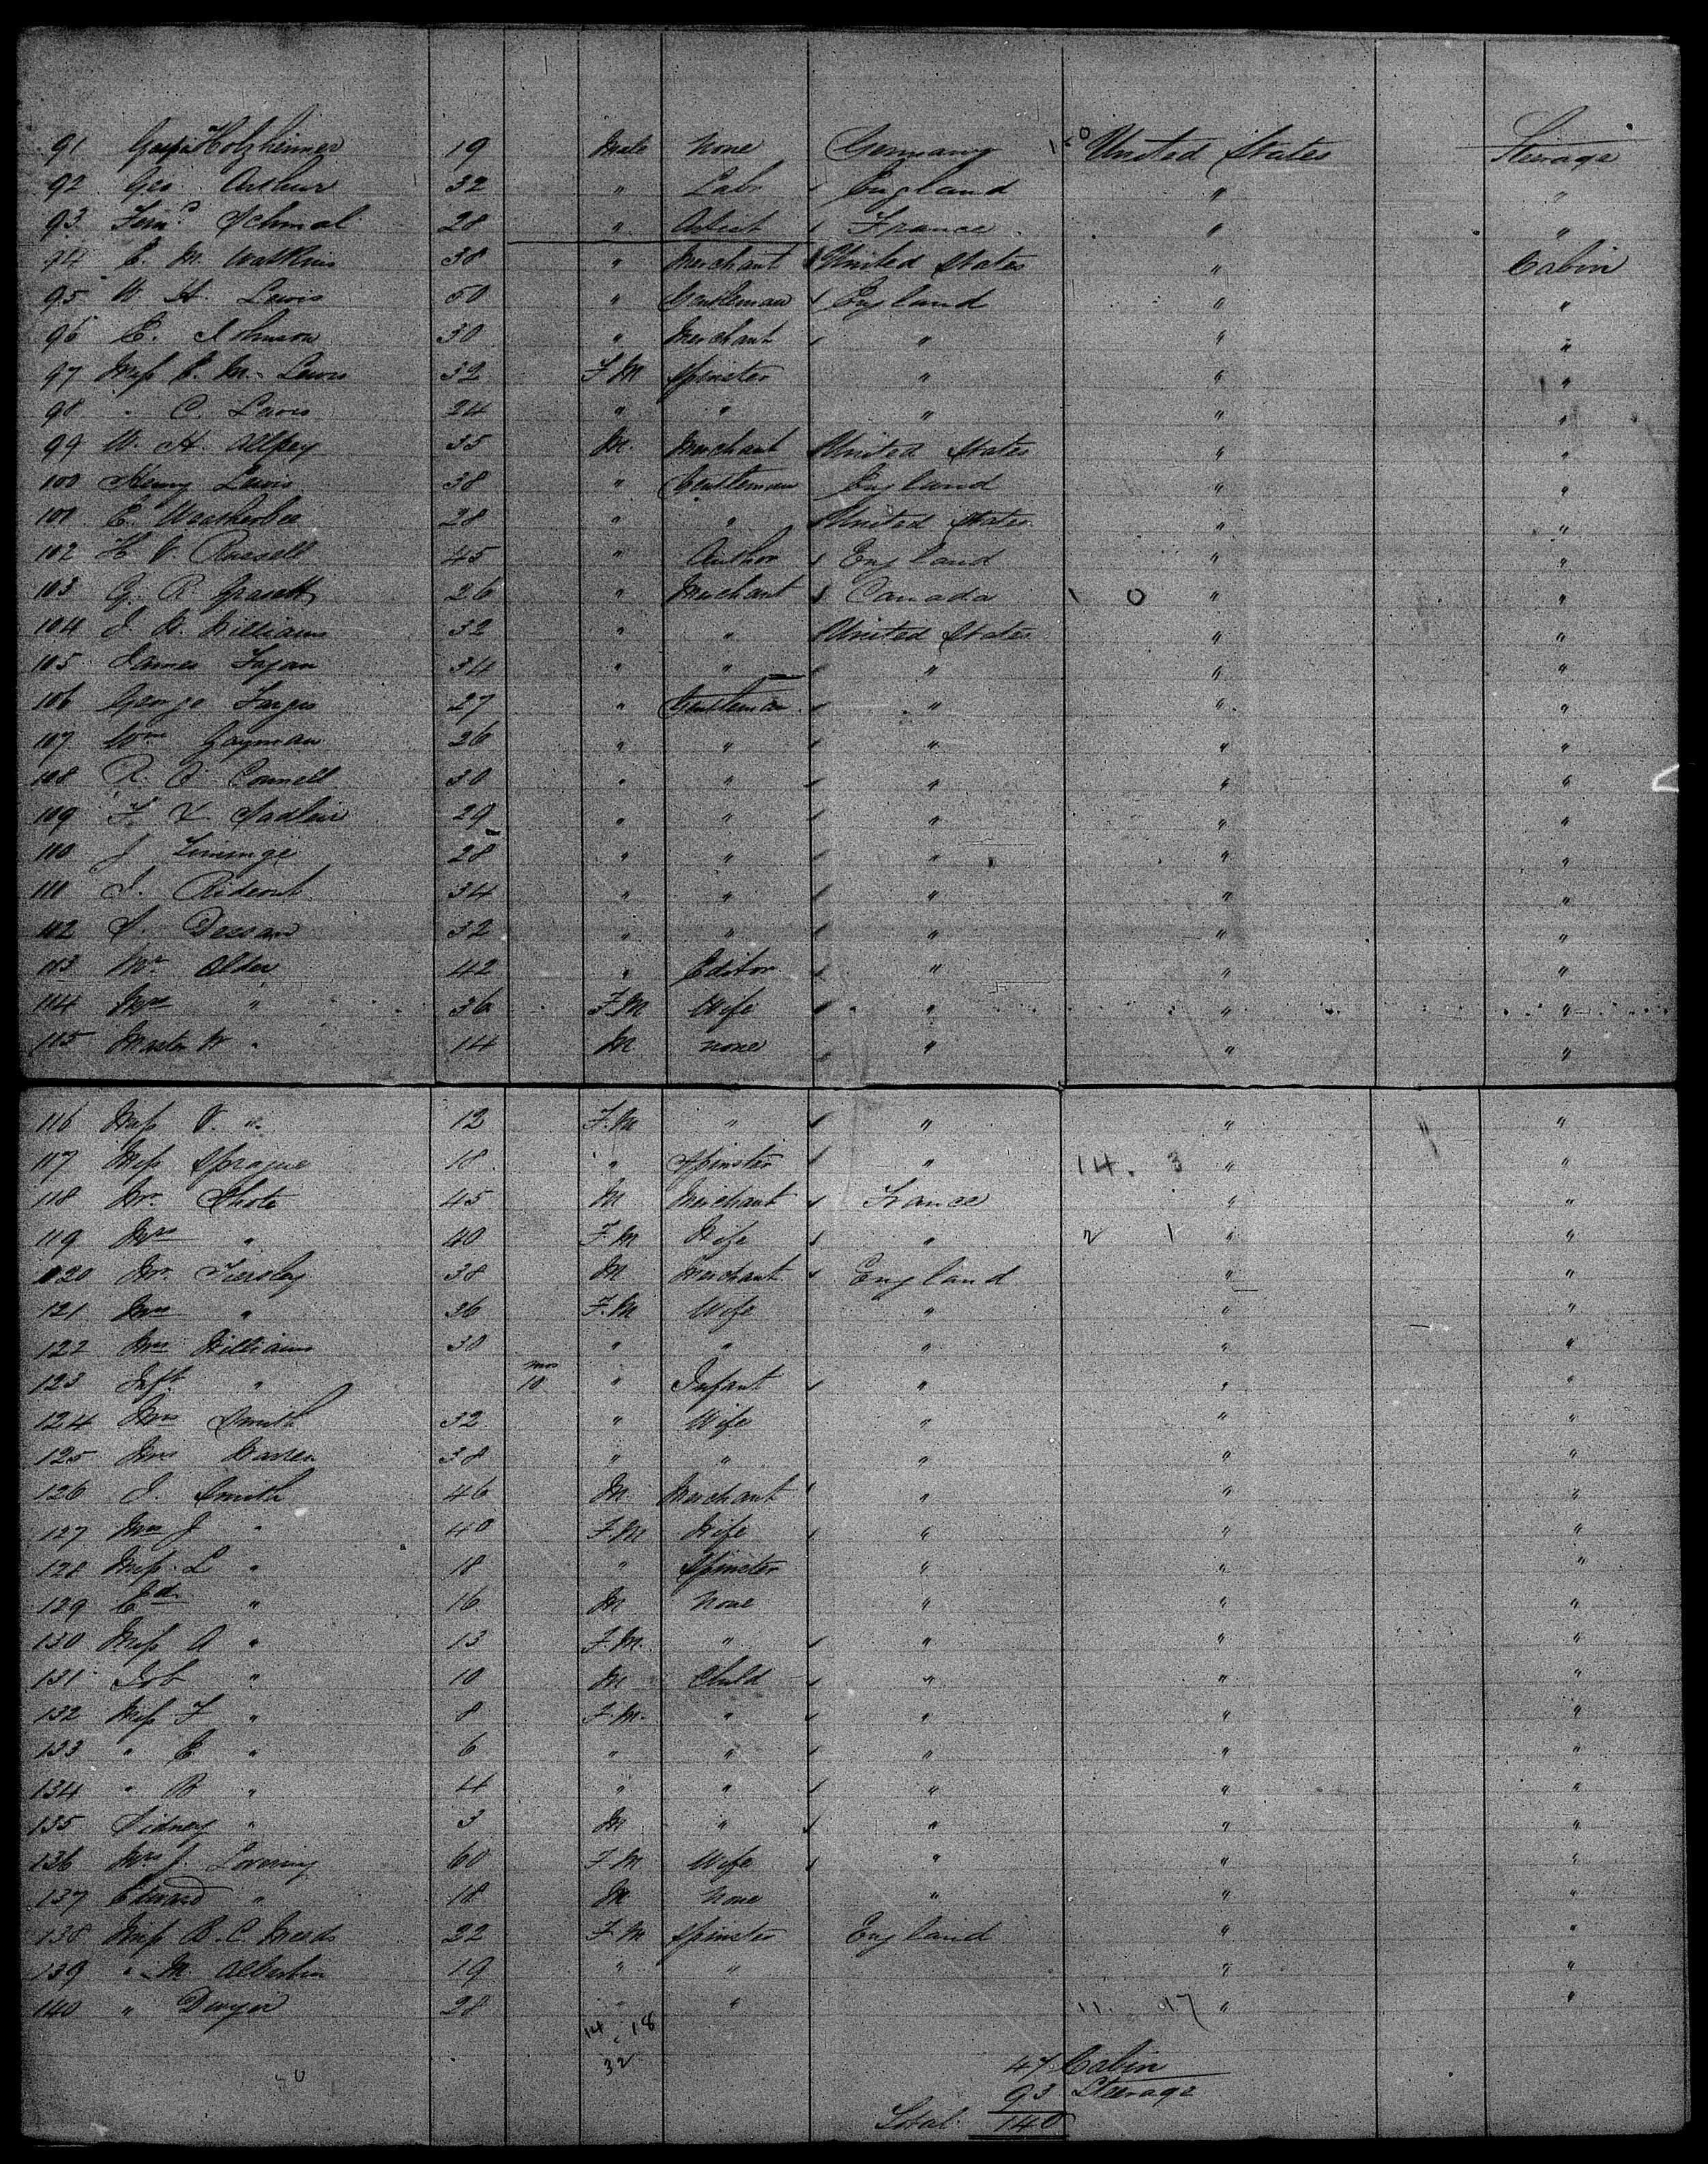 91 Holzheimer 19 Male None Germany United States Steerage
92 Geo. Arthur 32 " Labr England " "
93 Schmal 28 " Artist France " "
94 E. M. Watkins 38 " Merchant United States " Cabin
95 W. H. Lewis 50 " Gentleman England " "
96 E. Johnson 30 " Merchant " " "
97 Miss E. M. Lewis 32 F.M Spinster " " "
98 " C. Lewis 24 " " " " "
99 W. H. 35 M. Merchant United States " "
100 Henry Lewis 38 " Gentleman England " "
101 E. Weatherbee 28 " " United States " "
102 H. V. Russell 45 " Author England " "
103 G. R. 26 " Merchant Canada 0 " "
104 J. B. Williams 32 " " United States " "
105 James Fagan 34 " " " " "
106 George Fargis 27 " Gentleman " " "
107 Wm Gayman 26 " " " " "
108 R. Connell 30 " " " " "
109 F. Sadleir 29 " " " " "
110 J 28 " " " " "
111 J. Rideout 34 " " " " "
112 S. Dessau 32 " " " " "
113 Mr Alder 42 " Editor " " "
114 Mrs " 36 F.M Wife " " "
115 Master W " 14 M None " " "
116 Miss V. " 12 F.M " " " "
117 Miss Sprague 18 " Spinster " 14. 3 " "
118 Mr. 45 M Merchant France " "
119 Mrs " 40 F.M Wife " 2 1 " "
120 Mr. Tiersley 38 M Merchant England " "
121 Mrs " 36 F.M Wife " " "
122 Mrs Williams 30 " " " " "
123 Inft " mos 10 " Infant " " "
124 Mrs Smith 32 " Wife " " "
125 Mrs Warren 38 " " " " "
126 J. Smith 46 M Merchant " " "
127 Mrs J " 40 F.M Wife " " "
128 Miss L " 18 " Spinster " " "
129 Ed " 16 M None " " "
130 Miss A " 13 F.M. " " " "
131 Job " 10 M Child " " "
132 Miss F " 8 F.M. " " " "
133 " E. " 6 " " " " "
134 " B " 4 " " " " "
135 Sidney " 3 M " " " "
136 Mrs J. Lovering 60 F.M Wife " " "
137 Edward " 18 M None " " "
138 Miss B. C. Meeds 22 F.M Spinster England " "
139 " M. 19 " " " "
140 " Dwyer 28 " " 11. 17 " "
14 18
32
47 Cabin
93 Steerage
Total 140